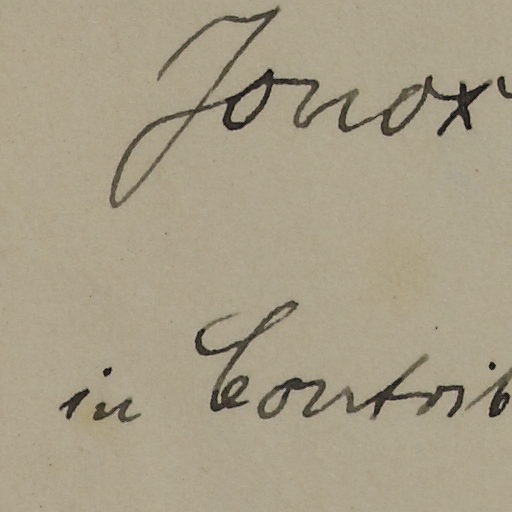 Jonox
in Contrib